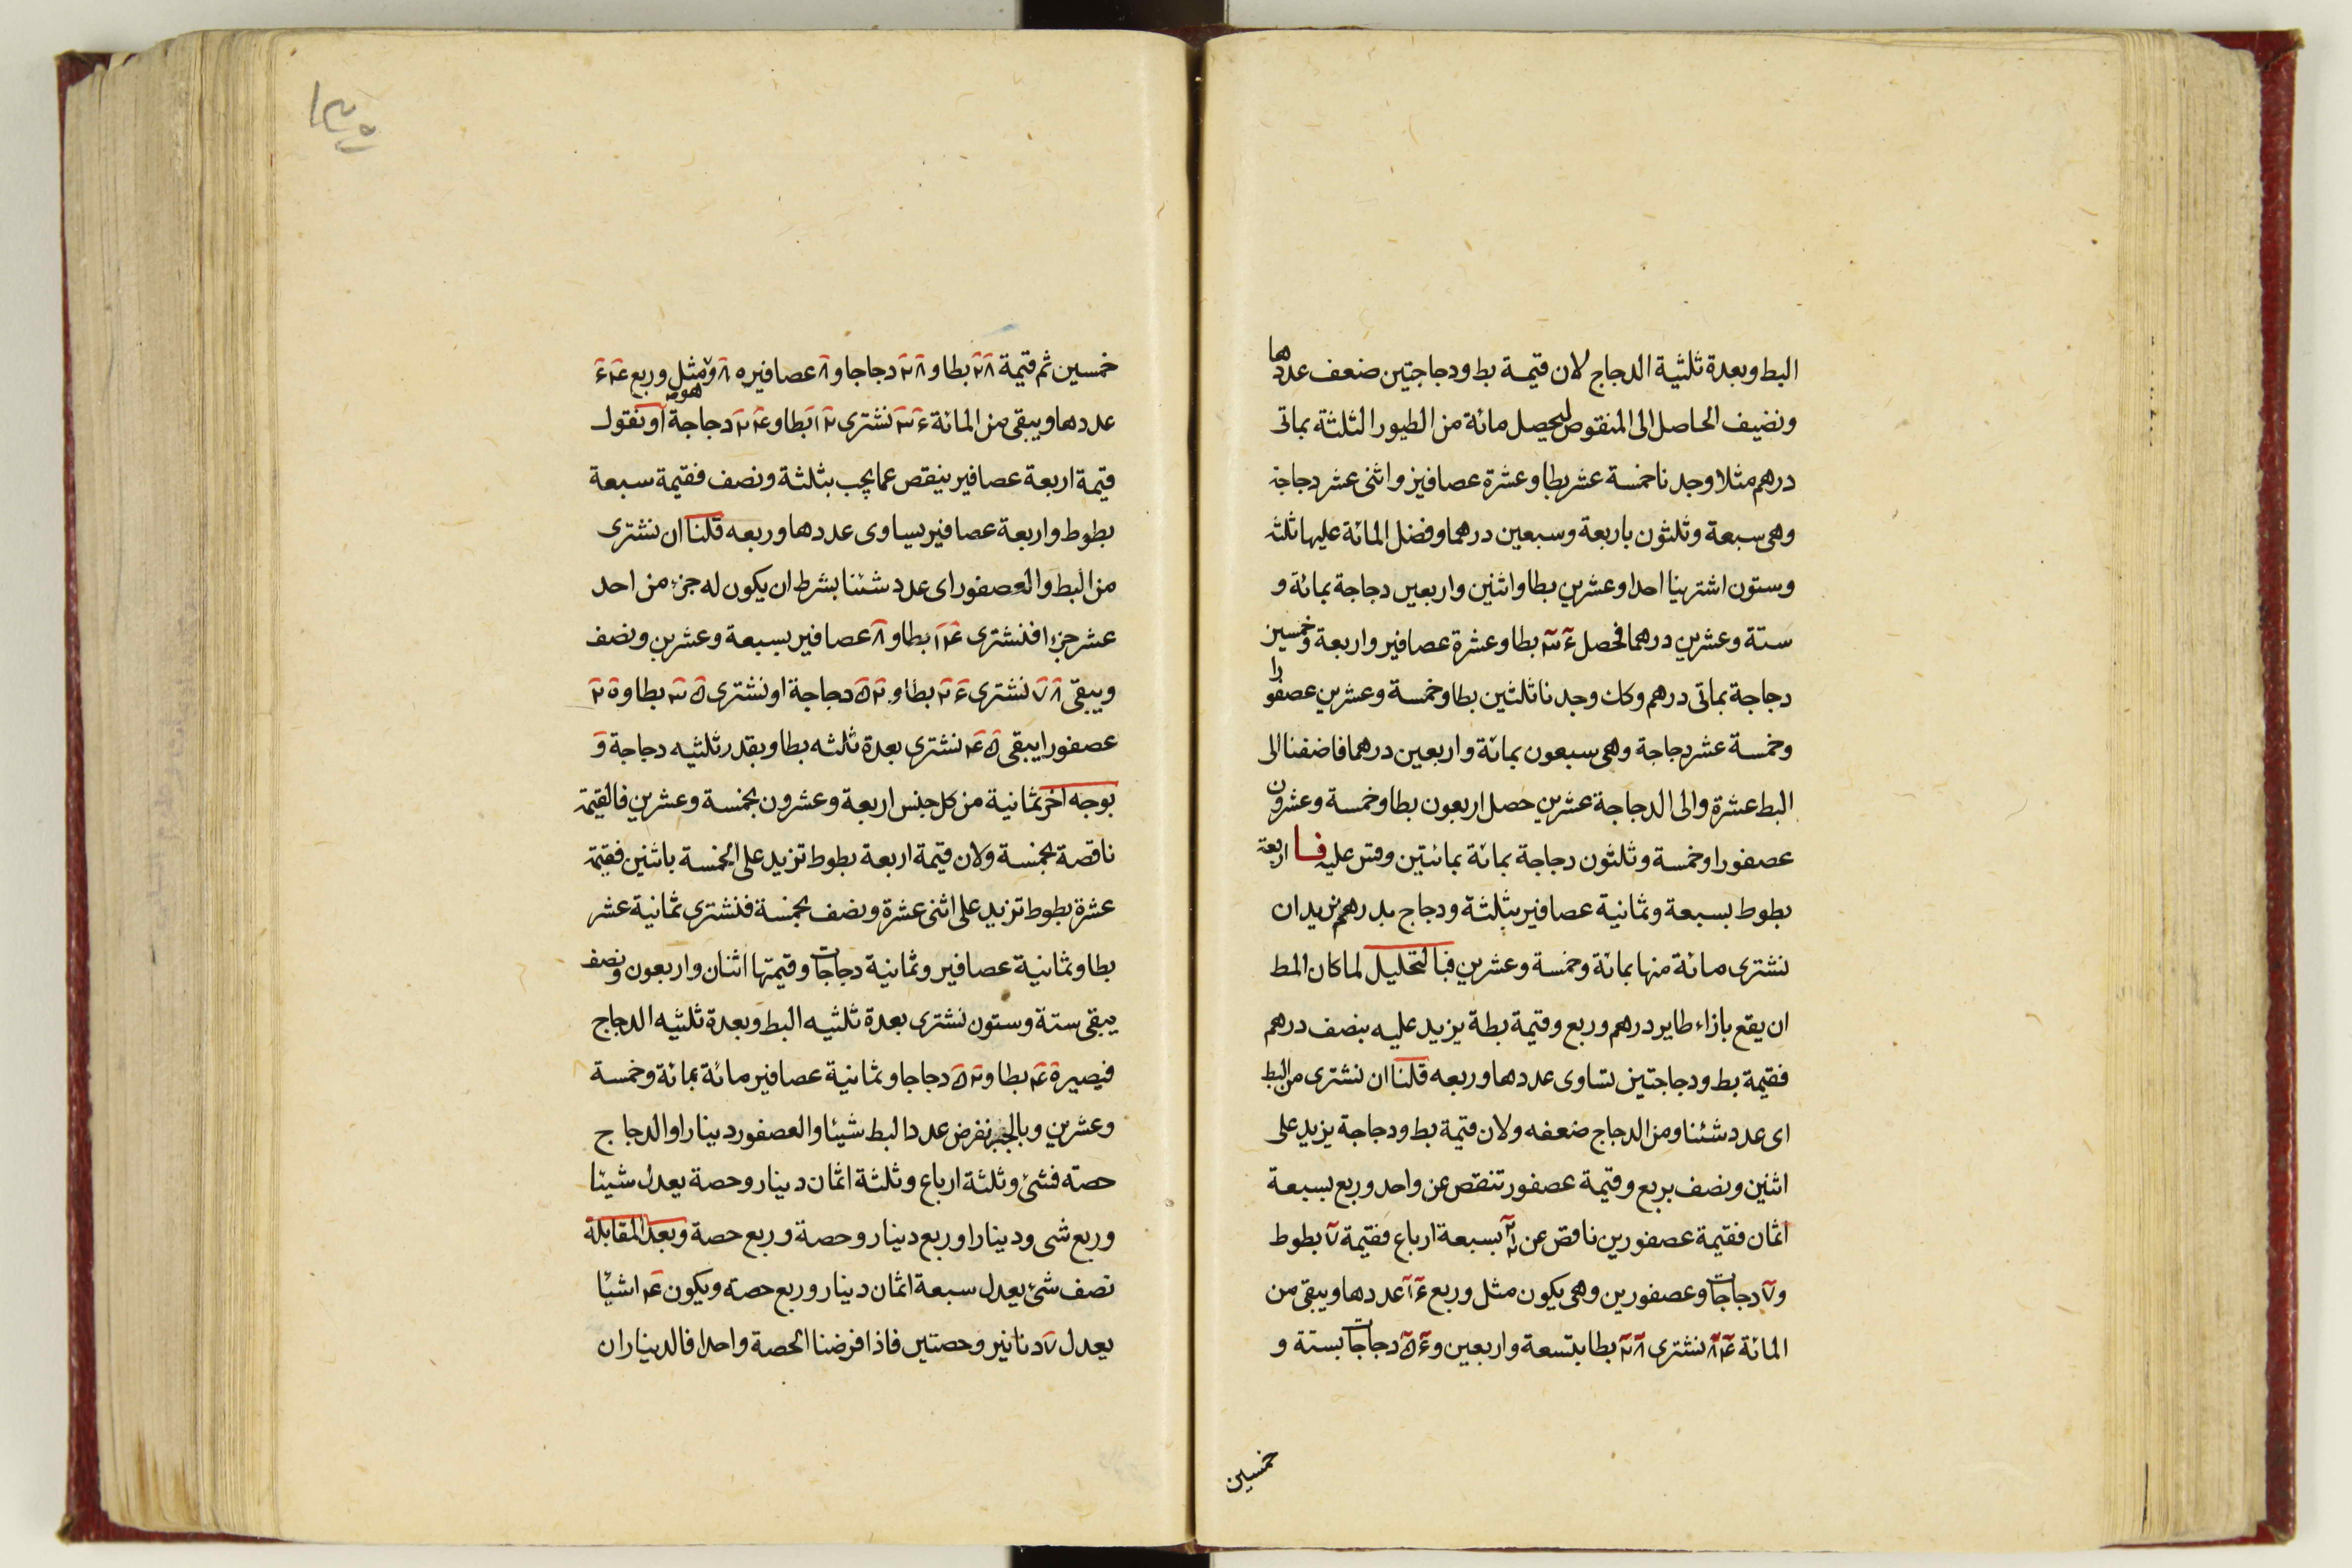 البط وبعدة ثلثية الدجاج لان قيمة بط ودجاجتين ضعف عددها
ونضيف الحاصل الى المنقوص ليحصل مائة من الطيور الثلثة بماتى
درهم مثلا وجدنا خمسة عشر بطا وعشرة عصافيز واثنى عشر دجاجة
وهى سبعة وثلثون باربعة وسبعين درهما وفضل المائة عليها ثلثه
وستون اشترينا احدا وعشرين بطا واثنين واربعين دجاجة بمائة و
ستة وعشرين درهما فحصل ۳۶ بطا وعشرة عصافير واربعة وخمسين
دجاجة بماتى درهم وكك وجدنا ثلثين بطا وخمسة وعشرين عصفورا
وخمسة عشر دجاجة وهى سبعون بمائة واربعين درهما فاضفنا الى
البط عشرة والى الدجاجة عشرين حصل اربعون بطا وخمسة وعشرون
عصفورا وخمسة وثلثون دجاجة بمائة بمائتين وقس عليه فا اربعة
بطوط بسبعة وثمانية عصافير بثلثة ودجاج بدرهم نريد ان
نشترى مائة منها بمائة وخمسة وعشرين فبالتحليل لما كان المط
ان يقع بازاء طاير درهم وربع وقيمة بطة يزيد عليه بنصف درهم
فقيمة بط ودجاجتين تساوى عددها وربعه قلنا ان نشترى من البط
اى عدد شئنا ومن الدجاج ضعفه ولان قيمة بط ودجاجة يزيد على
اثنين ونصف بربع وقيمة عصفور تنقص عن واحد وربع بسبعة
اثمان فقيمة عصفورين ناقص عن بسبعة ارباع فقيمة ۷ بطوط
و۷ دجاجات وعصفورين وهى يكون مثل وربع ۱۶ عددها ويبقى من
المائة ۸۴ نشترى ۲۸ بطا بتسعة واربعين و۵۶ دجاجات بستة و
خمسين
۱۳۵
خمسين ثم قيمة ۲۸ بطا و۲۸ دجاجا و۸ عصافير ه ۸ و مثل وربع ۶۴
عددها ويبقى من المائة ۳۶ نشترى ۱۲ بطا و۲۴ دجاجة او نقول
قيمة اربعة عصافير ينقص عما يجب بثلثة ونصف فقيمة سبعة
بطوط واربعة عصافير يساوى عددها وربعه قلنا ان نشترى
من البط والعصفور اى عدد شئنا بشرط ان يكون له جزء من احد
عشر جزءا فنشترى ۱۴ بطا و۸ عصافير بسبعة وعشرين ونصف
ويبقى ۷۸ نشترى ۲۶ بطا و۵۲ دجاجة او نشترى ۳۵ بطا و۲۰
عصفورا يبقى ۴۵ نشترى بعدة ثلثه بطا وبقدر ثلثيه دجاجة و
بوجه اخر ثمانية من كل جنس اربعة وعشرون بخمسة وعشرين فالقيمة
ناقصة بخمسة ولان قيمة اربعة بطوط تزيد على الخمسة باثنين فقيمة
عشرة بطوط تزيد على اثنى عشرة ونصف بخمسة فنشترى ثمانية عشر
بطا وثمانية عصافير وثمانية دجاجات وقيمتها اثنان واربعون ونصف
يبقى ستة وستون نشترى بعدة ثلثيه البط وبعدة ثلثيه الدجاج
فيصير ۴۰ بطا و۵۲ دجاجا وثمانية عصافير مائة بمائة وخمسة
وعشرين وبالجبر نفرض عدد البط شيئا والعصفور دينارا والدجاج
حصة فشئ وثلثة ارباع وثلثة اثمان دينار وحصة يعدل شيئا
وربع شى ودينارا وربع دينار وحصة وربع حصة وبعد المقابلة
نصف شئ يعدل سبعة اثمان دينار وربع حصة ويكون ۴ اشيئا
يعدل ۷ دنانير وحصتين فاذا فرضنا الحصة واحدا فالديناران